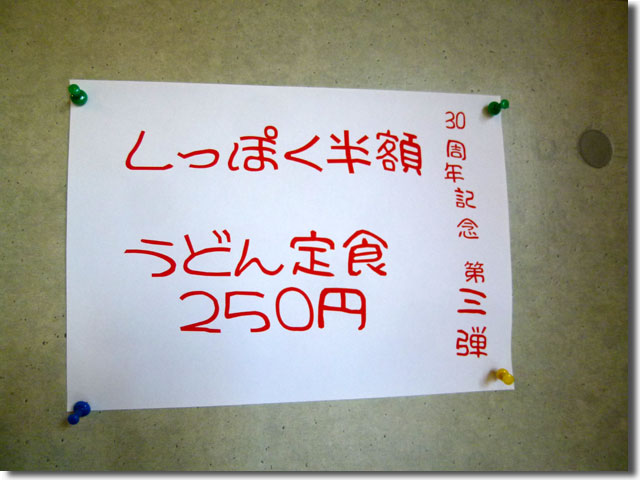 30周年記念 第三弾
しっぽく半額
うどん定食
250円